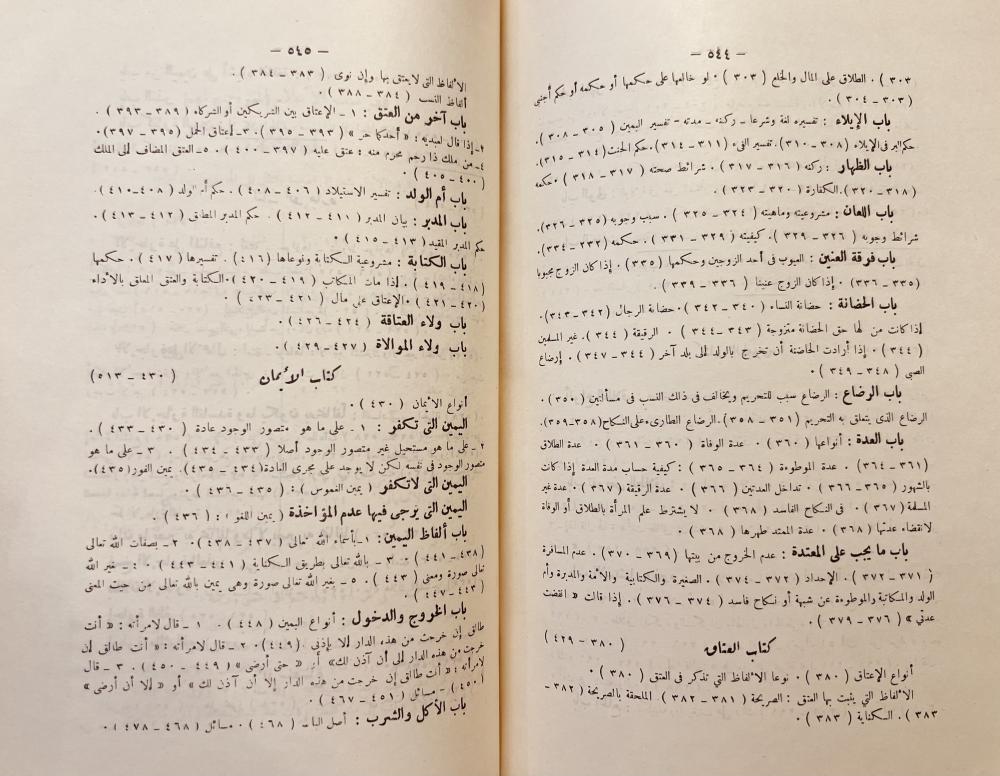 — ٥٤٤ —
٣٠٣ ) . الطلاق على المال والخلع ( ٣٠٣ ) . لو خالعها على حكمها أو حكمه أو حكم أجنبي
( ٣٠٣ – ٣٠٤ ) .
باب الإيلاء : تفسيره لغة وشرعا – ركنه – مدته – تفسير اليمين ( ٣٠٥ – ٣٠٨ ).
حكم البر فى الإيلاء ( ٣٠٨ – ٣١٠ ). تفسير الفىء ( ٣١١ – ٣١٤ ) . حكم الحنث ( ٣١٤ – ٣١٥ ).
باب الظهار : ركنه ( ٣١٦ – ٣١٧ ) . شرائط صحته ( ٣١٧ – ٣١٨ ) . حكمه
( ٣١٨ – ٣٢٠ ) . الكفارة ( ٣٢٠ – ٣٢٣ ) .
باب اللعان : مشروعيته وماهيته ( ٣٢٤ – ٣٢٥ ) . سبب وجوبه ( ٣٢٥ – ٣٢٦ ).
شرائط وجوبه ( ٣٢٦ – ٣٢٩ ) . كيفيته ( ٣٢٩ – ٣٣١ ) . حكمه ( ٢٣٢ – ٣٣٤ ).
باب فرقة العنين : العيوب فى أحد الزوجين وحكمها ( ٣٣٥ ) . إذا كان الزوج مجبوبا
( ٣٣٥ – ٣٣٦ ) . إذا كان الزوج عنينا ( ٣٣٦ – ٣٣٩ ) .
باب الحضانة : حضانة النساء ( ٣٤٠ – ٣٤٢ ) . حضانة الرجال ( ٣٤٢ – ٣٤٣ ).
إذا كانت من لها حق الحضانة متزوجة ( ٣٤٣ – ٣٤٤ ) . الرقيقة ( ٣٤٤ ) . غير المسلمين
( ٣٤٤ ) . إذا أرادت الحاضنة أن تخرج بالولد إلى بلد آخر ( ٣٤٤ – ٣٤٧ ) . إرضاع
الصبي ( ٣٤٨ – ٣٤٩ ) .
باب الرضاع : الرضاع سبب للتحريم ويخالف فى ذلك النسب فى مسألتين ( ٣٥٠ ).
الرضاع الذى يتعلق به التحريم ( ٣٥١ – ٣٥٨ ) . الرضاع الطارىء على النكاح ( ٣٥٨ – ٣٥٩ ).
باب العدة : أنواعها ( ٣٦٠ ) . عدة الوفاة ( ٣٦٠ – ٣٦١ ) . عدة الطلاق
( ٣٦١ – ٣٦٤ ) . عدة الموطوءة ( ٣٦٤ – ٣٦٥ ) : كيفية حساب مدة العدة إذا كانت
بالشهور ( ٣٦٥ – ٣٦٦ ) . تداخل العدتين ( ٣٦٦ ) . عدة الرقيقة ( ٣٦٧ ) . عدة غير
المسلمة ( ٣٦٧ ) . فى النكاح الفاسد ( ٣٦٨ ) . لا يشترط علم المرأة بالطلاق أو الوفاة
لانقضاء عدتها ( ٣٦٨ ) . عدة الممتد طهرها ( ٣٦٨ ) .
باب ما يجب على المعتدة : عدم الخروج من بيتها ( ٣٦٩ – ٣٧٠ ) . عدم المسافرة
( ٣٧١ – ٣٧٢ ) . الإحداد ( ٣٧٢ – ٣٧٤ ) . الصغيرة والكتابية والأمة والمدبرة وأم
الولد والمكاتبة والموطوءة عن شبهة أو نكاح فاسد ( ٣٧٤ – ٣٧٦ ) . إذا قالت « انقضت
عدتي » ( ٣٧٦ – ٣٧٩ ) .
كتاب العتاق ( ٣٨٠ – ٤٢٩ )
أنواع الإعتاق ( ٣٨٠ ) . نوعا الألفاظ التي تذكر فى العتق ( ٣٨٠ ) .
الألفاظ التي يثبت بها العتق : الصريحة ( ٣٨١ – ٣٨٢ ) . الملحقة بالصريحة ( ٣٨٢ –
٣٨٣ ) . الكناية ( ٣٨٣ ) .
— ٥٤٥ —
الألفاظ التى لا يعتق بها وإن نوى ( ٣٨٣ – ٣٨٤ ) .
ألفاظ النسب ( ٣٨٤ – ٣٨٨ ) .
باب آخر من العتق : ١ – الإعتاق بين الشريكين أو الشركاء ( ٣٨٩ – ٣٩٣ ) .
٢ – إذا قال لعبديه : « أحدكما حر » ( ٣٩٣ – ٣٩٥ ) . ٣ – إعتاق الحمل ( ٣٩٥ – ٣٩٧ ) .
٤ – من ملك ذا رحم محرم منه : عتق عليه ( ٣٩٧ – ٤٠٠ ) . ٥ – العتق المضاف إلى الملك
( ٤٠٠ – ٤٠٥ ) .
باب أم الولد : تفسير الاستيلاد ( ٤٠٦ – ٤٠٨ ) . حكم أم الولد ( ٤٠٨ – ٤١٠ ).
باب المدبر : بيان المدبر ( ٤١١ – ٤١٢ ) . حكم المدبر المطلق ( ٤١٢ – ٤١٣ ) .
حكم المدبر المقيد ( ٤١٣ – ٤١٥ ) .
باب الكتابة : مشروعية الكتابة ونوعاها ( ٤١٦ ) . تفسيرها ( ٤١٧ ) . حكمها
( ٤١٨ – ٤١٩ ) . إذا مات المكاتب ( ٤١٩ – ٤٢٠ ) . الكتابة والعتق المعلق بالأداء
( ٤٢٠ – ٤٢١ ) . الإعتاق على مال ( ٤٢١ – ٤٢٣ ) .
باب ولاء العتاقة ( ٤٢٤ – ٤٢٦ ) .
باب ولاء الموالاة ( ٤٢٧ – ٤٢٩ ) .
كتاب الأيمان ( ٤٣٠ – ٥١٣ )
أنواع الأيمان ( ٤٣٠ ) .
اليمين التى تكفر : ١ – على ما هو متصور الوجود عادة ( ٤٣٠ – ٤٣٣ ) .
٢ – على ما هو مستحيل غير متصور الوجود أصلا ( ٤٣٣ – ٤٣٤ ) . ٣ – على ما هو
متصور الوجود فى نفسه لكن لا يوجد على مجرى العادة ( ٤٣٤ – ٤٣٥ ) . يمين الفور ( ٤٣٥ ).
اليمين التى لا تكفر ( يمين الغموس ) : ( ٤٣٥ – ٤٣٦ ) .
اليمين التى يرجى فيها عدم المؤاخذة ( يمين اللغو ) : ( ٤٣٦ ) .
باب ألفاظ اليمين : ١ – بأسماء الله تعالى ( ٤٣٧ – ٤٣٨ ) . ٢ – بصفات الله تعالى
( ٤٣٨ – ٤٤١ ) . ٣ – بالله تعالى بطريق الكناية ( ٤٤١ – ٤٤٣ ) . ٤ – غير الله
تعالى صورة ومعنى ( ٤٤٣ ) . ٥ – بغير الله تعالى صورة وهى يمين بالله تعالى من حيث المعنى
( ٤٤٣ – ٤٤٧ ) .
باب الخروج والدخول : أنواع اليمين ( ٤٤٨ ) . ١ – قال لامرأته : « أنت
طالق إن خرجت من هذه الدار إلا بإذنى ( ٤٤٩ ) . ٢ – قال لامرأته : « أنت طالق إن
خرجت من هذه الدار إلى أن آذن لك » أو « حتى أرضى » ( ٤٤٩ – ٤٥٠ ) . ٣ – قال
لامرأته : « أنت طالق إن خرجت من هذه الدار إلا أن آذن لك » أو « إلا أن أرضى »
( ٤٥٠ ) – مسائل ( ٤٥١ – ٤٦٧ ) .
باب الأكل والشرب : أصل الباب ( ٤٦٨ ) . مسائل ( ٤٦٨ – ٤٧٨ ) .